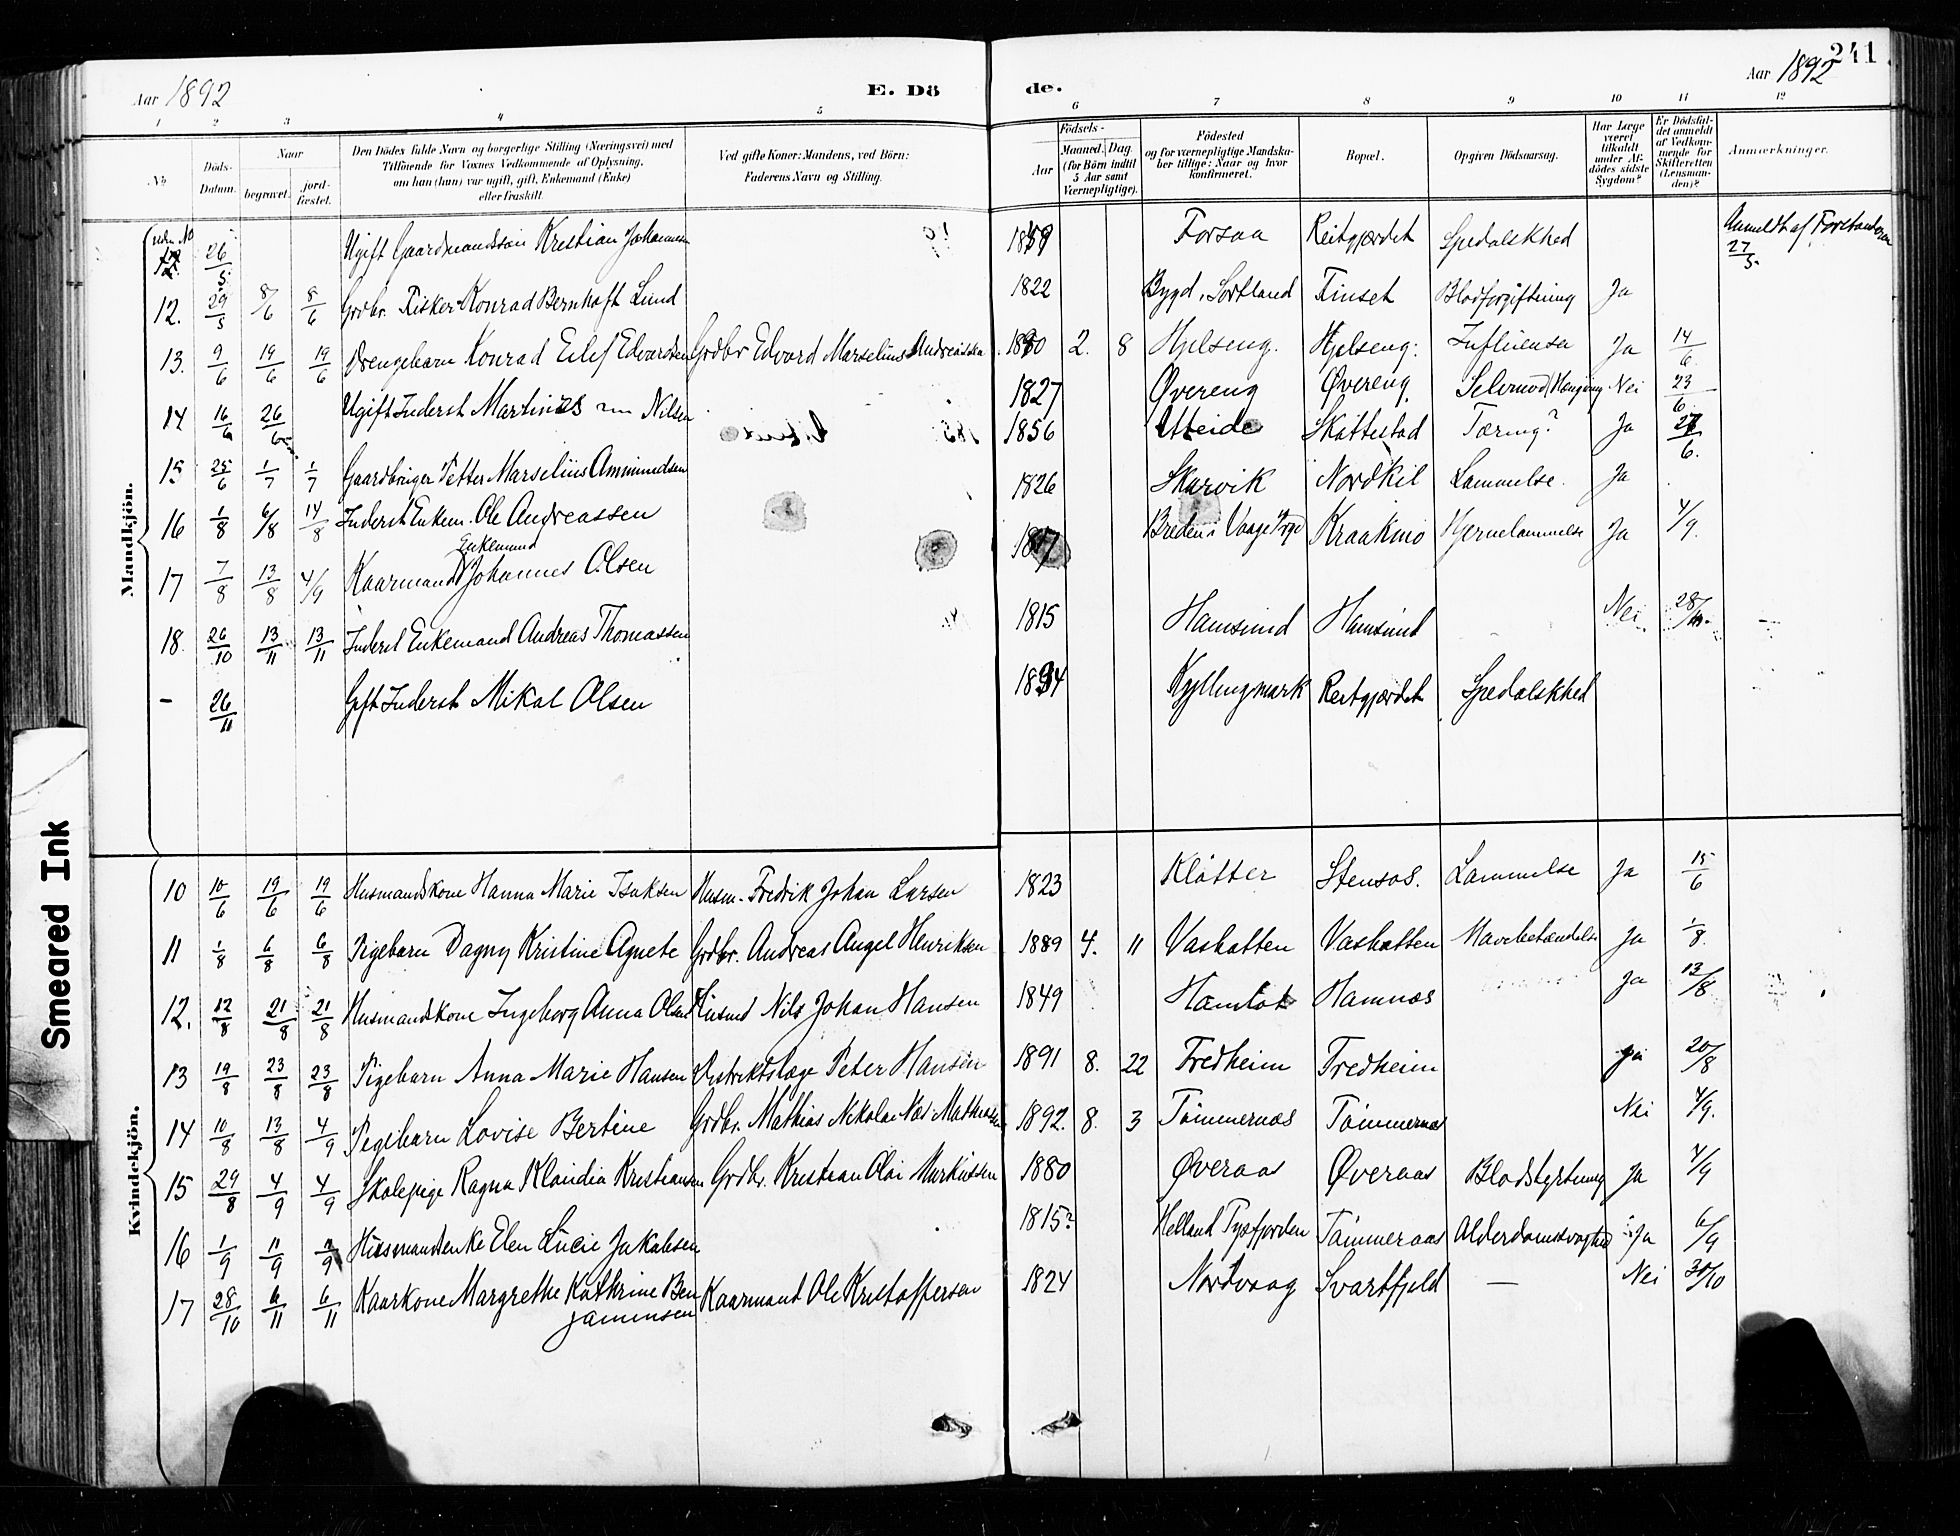 Aar 1892
E. Dö
de.
Aar 1892
241
1 2 3 4 5 6 7 8 9 10 11 12
No
Döds-Datum.
Naar
begravet.
jord-fæstet.
Den Dödes fulde Navn og borgerlige Stilling (Næringsvei) med
Tilföiende for Voxnes Vedkommende af Oplysning,
om han (hun) var ugift, gift, Enkemand (Enke)
eller fraskilt.
Ved gifte Koner: Mandens, ved Börn:
Faderens Navn og Stilling.
Födsels-
Aar
Maaned. Dag.
(for Börn indtil
5 Aar samt
Værnepligtige).
Födested
og for værnepligtige Mandska-
ber tillige: Naar og hvor
konfirmeret.
Bopæl.
Opgiven Dödsaarsag.
Har Læge
været
tilkaldt
under Af-
dödes sidste
Sygdom?
Er Dödsfal-
det anmeldt
af Vedkom-
mende for
Skifteretten
(Lensman-
den)?
Anmærkninger.
Mandkjön.
26/5 Ugift Gaardmandssön Kristian Johannesen 1859 Forsaa Reitgjærdet Spedalskhed Anmeldt af Forstanderen 27/5.
12. 29/5 8/6 8/6 Grdbr. Fisker Konrad Bernhoft Lund 1822 Bygd, Sortland Finset Blodforgiftning Ja
13. 9/6 19/6 19/6 Drengebarn Konrad Eilef Edvardsen Grdbr Edvard Marselius Andreassen 1890 2. 8 Hjelseng. Hjelseng. Influensa Ja 14/6
14 16/6 26/6 Ugift Inderst Martinus Nilsen 1827 Övereng Övereng. Selvmord (Hængning) Nei 23/6
15 25/6 1/7 1/7 Gaardbruger Petter Marselius Ammundsen 1856 Utteide Skottestad Tæring? Ja 27/6.
16 1/8 6/8 14/8 Inderst Enkem. Ole Andreassen 1826 Skarvik Nordkil Lammelse. Ja
17 7/8 13/8 4/9 Kaarmand Enkemand Johannes Olsen Kraakmo Hjernelammelse Ja 4/9.
18. 26/10 13/11 13/11 Inderst Enkemand Andreas Thomassen 1815 Hamsund Hamsund Nei
- 26/11 Gift Inderst Mikal Olsen 1834 Kyllingmark Reitgjærdet Spedalskhed
Kvindekjön.
10 10/6 19/6 19/6 Husmandskone Hanna Marie Isaksen Husm. Fredrik Johan Larsen 1823 Klötter Stensos. Lammelse Ja 15/6
11 1/8 6/8 6/8 Pigebarn Dagny Kristine Agnete Grdbr. Andreas Angel Henriksen 1889 4. 11 Vashatten Vashatten Mavebetændelse Ja 1/8.
12. 12/8 21/8 21/8 Husmandskone Ingeborg Anna Olsen Husmd Nils Johan Hansen 1849 Hamnæs Ja 13/8
13 19/8 23/8 23/8 Pigebarn Anna Marie Hansen Distriktslæge Peter Hansen 1891 8. 22 Fredheim Fredheim Ja 20/8
14 10/8 13/8 4/9 Pigebarn Lovise Bertine Grdbr. Mathias Nikolai 1892. 8. 3 Tömmernæs Tömmernæs Nei 4/9.
15 29/8 4/9 4/9 Skolepige Ragna Klaudia Kristiansen Grdbr. Kristian Olai Markussen 1880 Överaas Överaas Blodstyrtning Ja 4/9
16 1/9 11/9 Husmandsenke Elen Lucie Jakobsen 1815? Helland Tysfjorden Tömmeraas Alderdomssvaghed Ja 6/9
17 28/10 6/11 6/11 Kaarkone Margrethe Kathrine Ben
jaminsen Kaarmand Ole Kristoffersen 1824 Nordvaag Svartfjeld — Nei 30/10
Smeared Ink